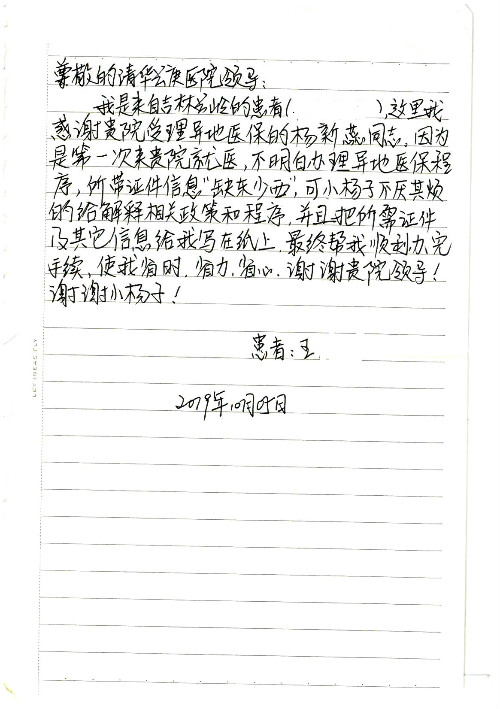 尊敬的清华长庚医院领导:
我是来自吉林公岭的患者( ),这里我
感谢贵院受理异地医保的杨新蕊同志,因为
是第一次来贵院就医,不明白办理异地医保程
序,所带证件信息“缺东少西”,可小杨子不厌其烦
的给解释相关政策和程序,并且把所需证件
及其它信息给我写在纸上,最终帮我顺利办完
手续,使我省时,省力,省心。谢谢贵院领导!
谢谢小杨子!
患者:王
2019年10月05日
LET IDEAS FLY